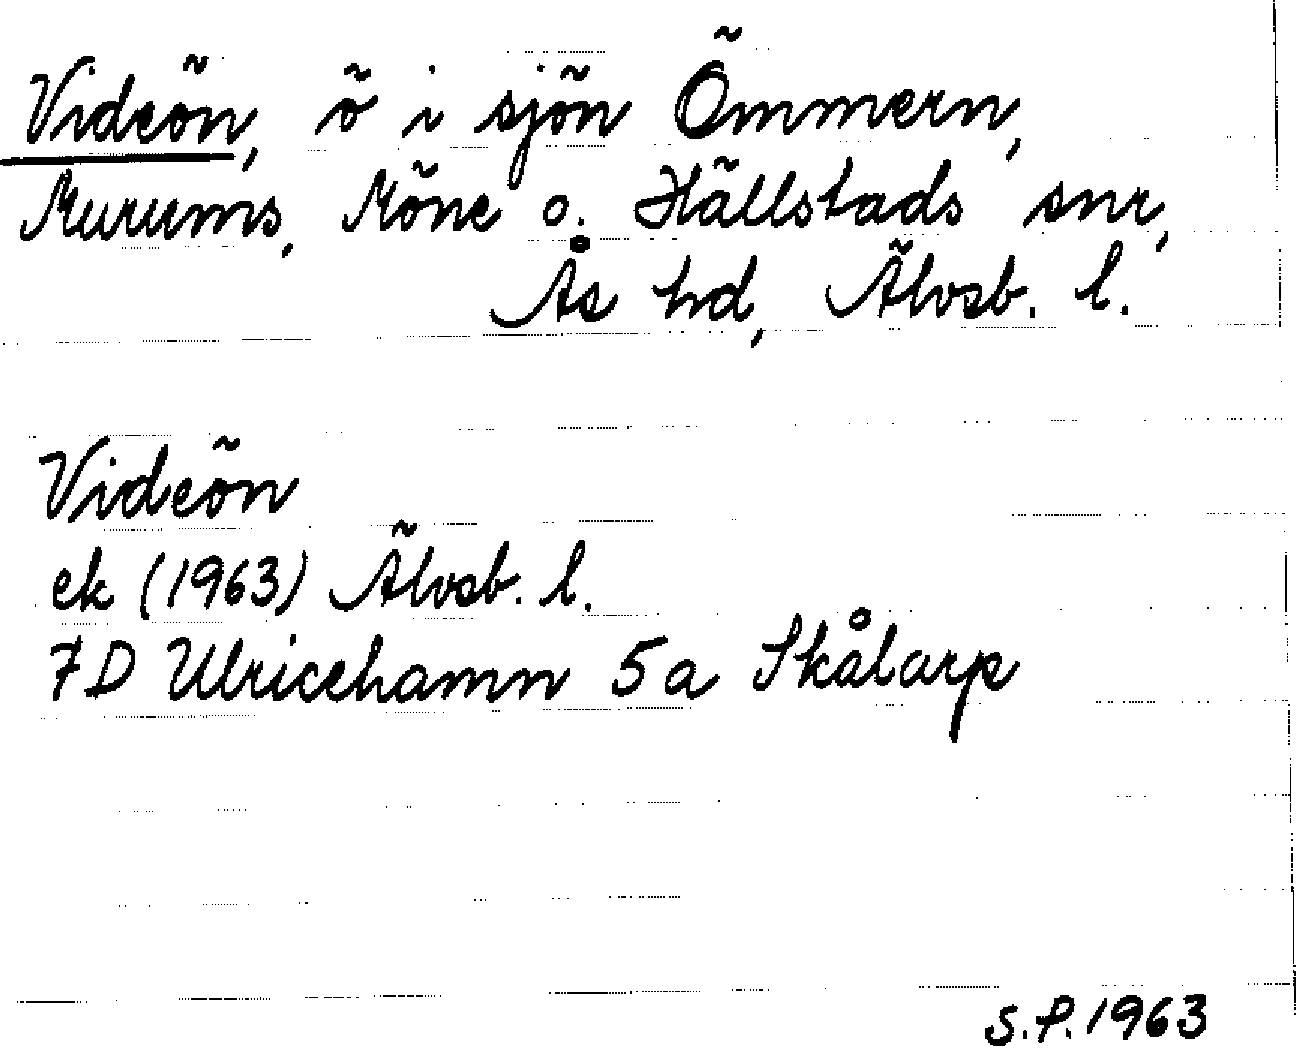 Videön, ö i sjön Ömmern,
Murums, Möne o. Hällstads snr,
Ås hd, Älvsb. l.
Videön
ek (1963) Älvsb. l.
7D Ulricehamn 5a Skålarp
S.P. 1963